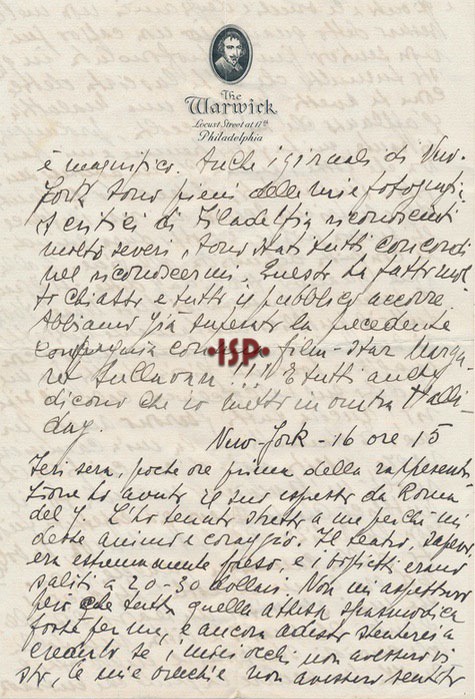 The
Warwick
Locust Street at 17th
Philadelphia
è magnifico. Anche i giornali di New-
York sono pieni delle mie fotografie
I critici di Filadelfia riconosciuti
molto severi, sono stati tutti concordi
nel riconoscermi. Questo ha fatto mol
to chiasso e tutto il pubblico accorre
Abbiamo già superato la precedente
compagnia con la film-star Marga
ret Sullavan !!! E tutti anche
dicono che io metto in ombra Halli
day.
ISP
New-York - 16 ore 15
Ieri sera, poche ore prima della rappresenta
zione ho avuto il suo espresso da Roma
del 7. L'ho tenuto stretto a me perché mi
desse animo e coraggio. Il teatro, sapevo
era estremamente preso, e i biglietti erano
saliti a 20-30 dollari. Non mi aspettavo
però che tutta quella attesa spasmodica
fosse per me, e ancora adesso stenterei a
crederlo se i miei occhi non avessero vi
sto, le mie orecchie non avessero sentito